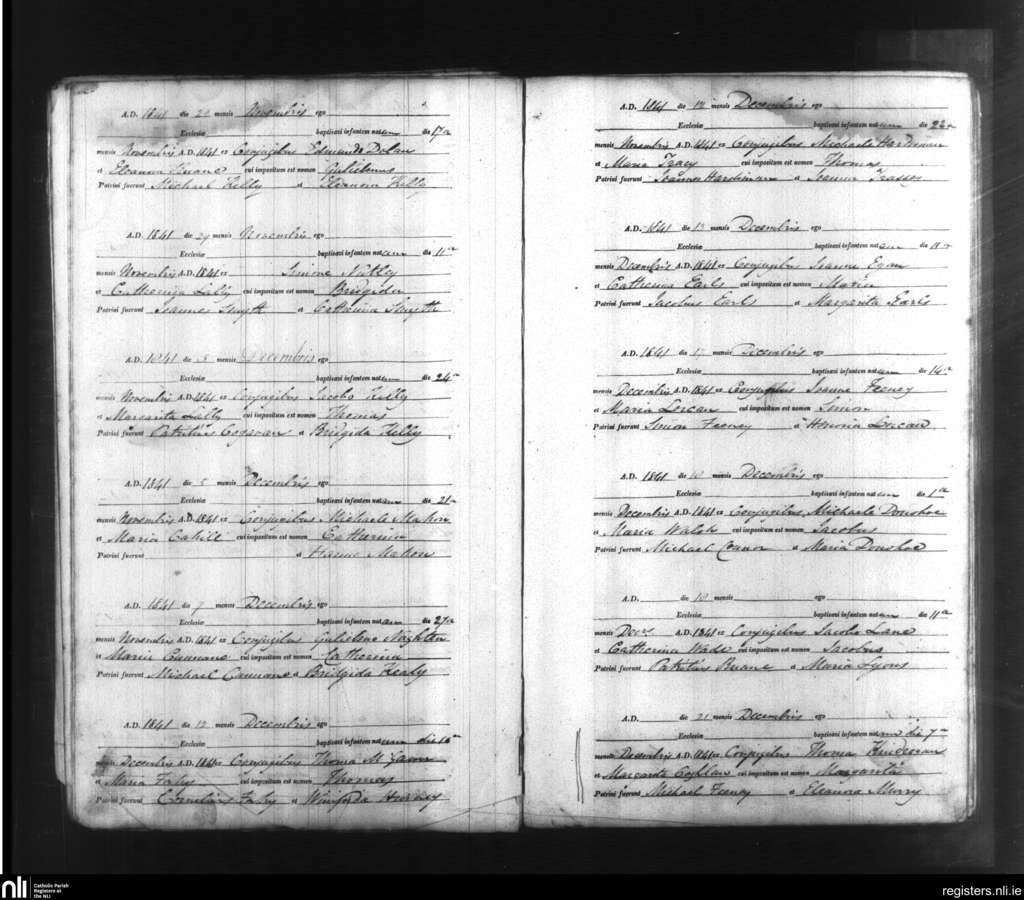 A.D. 1841 die 22 mensis Novembris ego
Ecclesiæ baptizavi infantem natum die 17a
mensis Novembris A.D. 1841 ex Conjugibus Edmundo Dolan
et Eleanora cui impositum est nomen Gulielmus
Patrini fuerunt Michael Kelly et Eleanora Kelly
A.D. 1841 die 29 mensis Novembris ego
Ecclesiæ baptizavi infantem natam die 11a
mensis Novembris A.D. 1841 ex Simone Nutley
et Catherina Lally cui impositum est nomen Bridgida
Patrini fuerunt Joannes Smyth et Catherina Smyth
A.D. 1841 die 5 mensis Decembris ego
Ecclesiæ baptizavi infantem natum die 24a
mensis Novembris A.D. 1841 ex Conjugibus Jacobo Kelly
et Margarita Lally cui impositum est nomen Thomas
Patrini fuerunt Patritius et Bridgida Kelly
A.D. 1841 die 5 mensis Decembris ego
Ecclesiæ baptizavi infantem natam die 21a
mensis Novembris A.D. 1841 ex Conjugibus Michaele Mahon
et Maria Cahill cui impositum est nomen Catherina
Patrini fuerunt et Hanna Mahon
A.D. 1841 die 7 mensis Decembris ego
Ecclesiæ baptizavi infantem natam die 27a
mensis Novembris A.D. 1841 ex Conjugibus Gulielmo Naghten
et Maria Cannane cui impositum est nomen Catherina
Patrini fuerunt Michael Cannane et Bridgida Kealy
A.D. 1841 die 12 mensis Decembris ego
Ecclesiæ baptizavi infantem natum die 10a
mensis Decembris A.D. 1841 ex Conjugibus Thoma
et Maria Fahy cui impositum est nomen Thomas
Patrini fuerunt Cornelius Fahy et Winifrida
A.D. 1841 die 12 mensis Decembris ego
Ecclesiæ baptizavi infantem natum die 22a
mensis Novembris A.D. 1841 ex Conjugibus Michaele Hardiman
et Maria Tracy cui impositum est nomen Thomas
Patrini fuerunt Joannes Hardiman et Joanna
A.D. 1841 die 13 mensis Decembris ego
Ecclesiæ baptizavi infantem natam die
mensis Decembris A.D. 1841 ex Conjugibus Joanne Egan
et Catherina Earls cui impositum est nomen Maria
Patrini fuerunt Jacobus Earls et Margarita Earls
A.D. 1841 die 17 mensis Decembris ego
Ecclesiæ baptizavi infantem natum die 14a
mensis Decembris A.D. 1841 ex Conjugibus Joanne Feeney
et Maria Lorcan cui impositum est nomen Simon
Patrini fuerunt Simon Feeney et Honoria Lorcan
A.D. 1841 die 10 mensis Decembris ego
Ecclesiæ baptizavi infantem natum die 1a
mensis Decembris A.D. 1841 ex Conjugibus Michaele Donohoe
et Maria Walsh cui impositum est nomen Jacobus
Patrini fuerunt Michael et Maria Donohoe
A.D. die 18 mensis ego
Ecclesiæ baptizavi infantem natum die 11a
mensis A.D. 1841 ex Conjugibus Jacobo Lane
et Catherina Wade cui impositum est nomen Jacobus
Patrini fuerunt Patritius Ruane et Maria Lyons
A.D. die 21 mensis Decembris ego
Ecclesiæ baptizavi infantem natam die 7a
mensis Decembris A.D. 1841 ex Conjugibus Thoma
et Margarita Coghlan cui impositum est nomen Margarita
Patrini fuerunt Michael Feeney et Eleanora Murry
nli Catholic Parish
Registers at
the NLI
registers.nli.ie